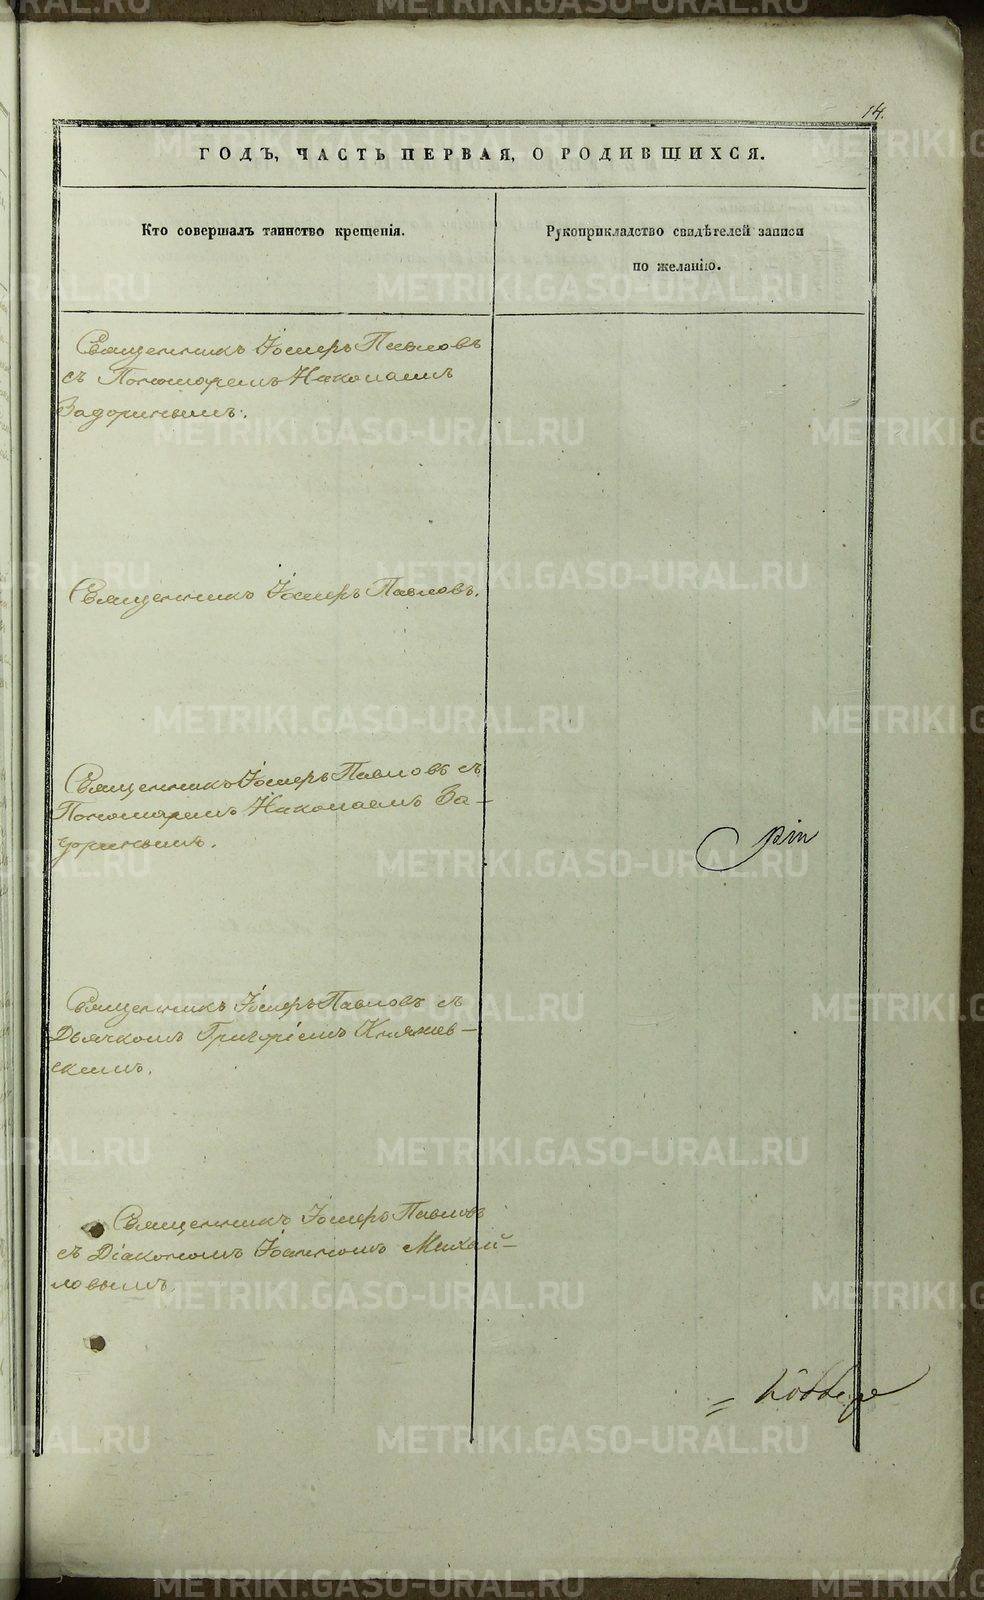 14.
ГОДЪ, ЧАСТЬ ПЕРВАЯ, О РОДИВШИХСЯ.
Кто совершалъ таинство крещенія.
Рукоприкладство свидѣтелей записи
по желанію.
Священникъ Іосифъ Павловъ
съ Пономаремъ Николаемъ
Задоринымъ.
Священникъ Іосифъ Павловъ.
Священникъ Іосифъ Павловъ съ
Пономаремъ Николаемъ За-
доринымъ.
Священникъ Іосифъ Павловъ съ
Дьячкомъ Григоріемъ Княжев-
скимъ.
Священникъ Іосифъ Павловъ
съ Діакономъ Іоанномъ Михай-
ловымъ.
METRIKI.GASO-URAL.RU